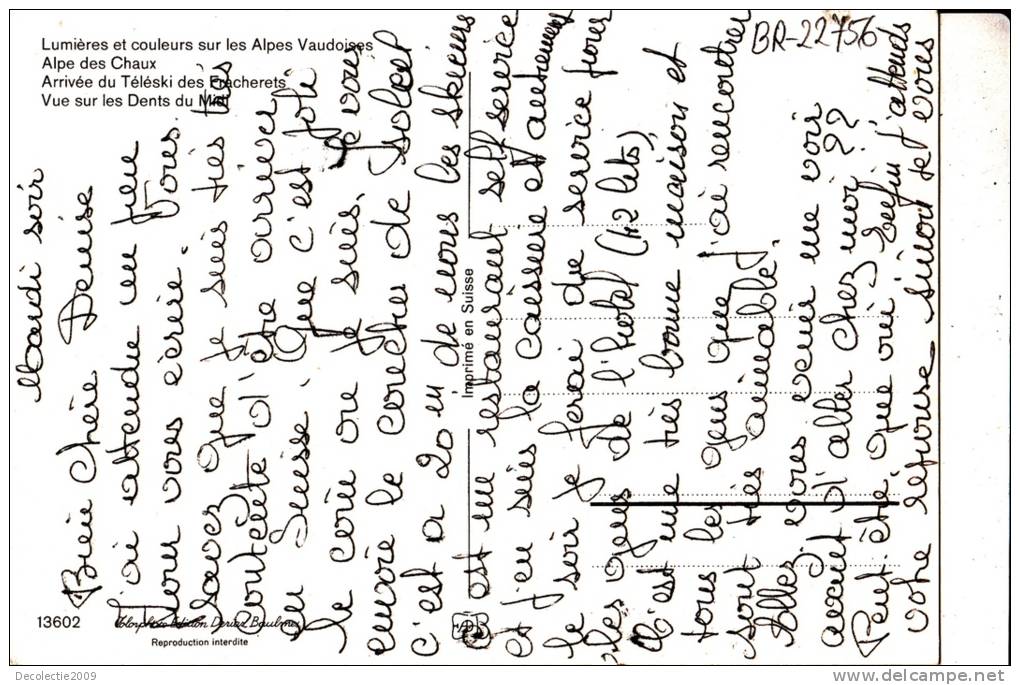 Lumières et couleurs sur les Alpes Vaudoises
Alpe des Chaux
Arrivée du Téléski des Fracherets
Vue sur les Dents du Midi
BR-22756
Mardi soir
Bien chère Denise
J'ai attendu un peu
pour vous écrire. Vous
savez que je suis très très
contente d'être arriver
en Suisse. Que c'est joli
le coin ou je suis. Je vous
envoie le couché de soleil
c'est a 20 m de nous les skieurs
est un restaurant self service
et j'en suis la caissière et autrement
le soir je ferai du service pour
les gens de l'hotel (42 lits)
C'est une très bonne maison et
tous les gens que j'ai rencontré
sont très aimable.
Allez vous venir me voir
avant d'aller chez moi ??
Peut-être que oui, enfin j'attends
votre réponse sinon tel vous
Imprimé en Suisse
13602
Colorphoto Edition Deriaz Baulmes
Reproduction interdite
Decolectie2009
www.delcampe.net